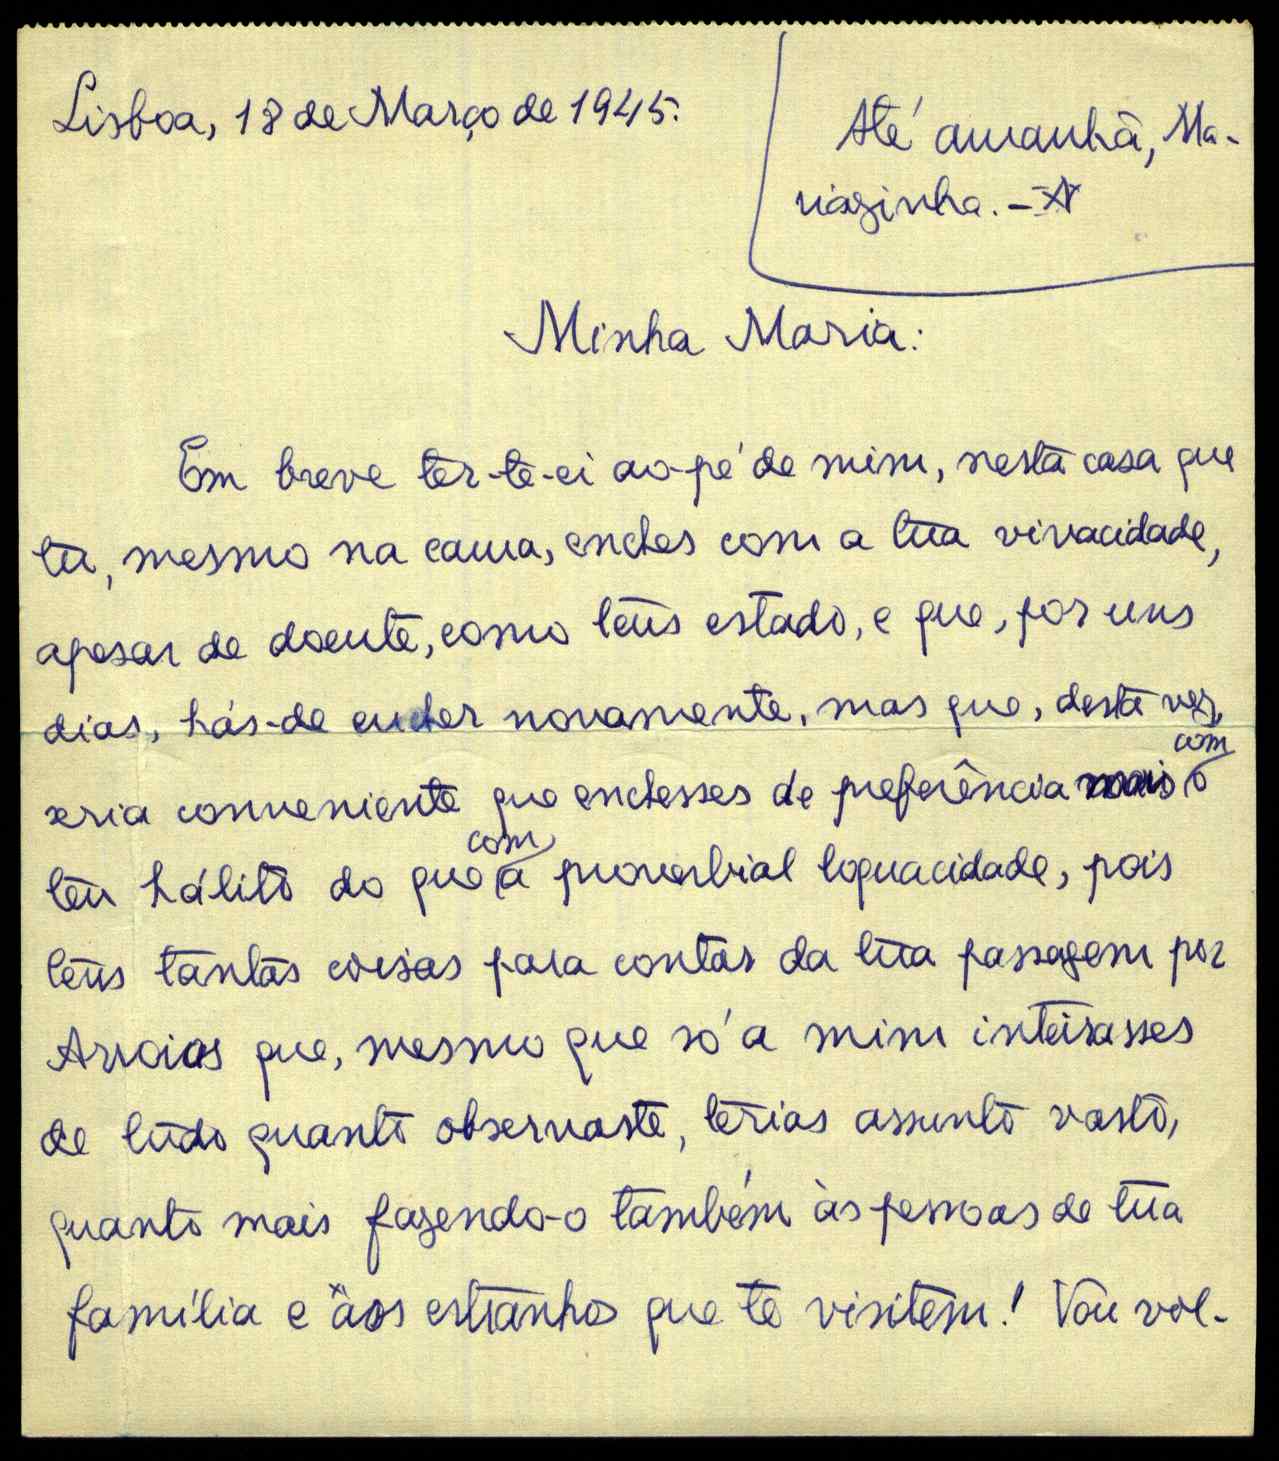 Lisboa, 18 de Março de 1945.
Até amanhã, Ma-
riazinha. - A
Minha Maria:
Em breve ter-te-ei ao-pé de mim, nesta casa que
tu, mesmo na cama, enches com a tua vivacidade,
apesar de doente, como tens estado, e que, por uns
dias, hás-de encher novamente, mas que, desta vez,
com
seria conveniente que enchesses de preferência o
com
teu hálito do que a proverbial loquacidade, pois
tens tantas coisas para contar da tua passagem por
Arroios que, mesmo que só a mim inteirasses
de tudo quanto observaste, terias assunto vasto,
quanto mais fazendo-o também às pessoas de tua
família e aos estranhos que te visitem! Vou vol-